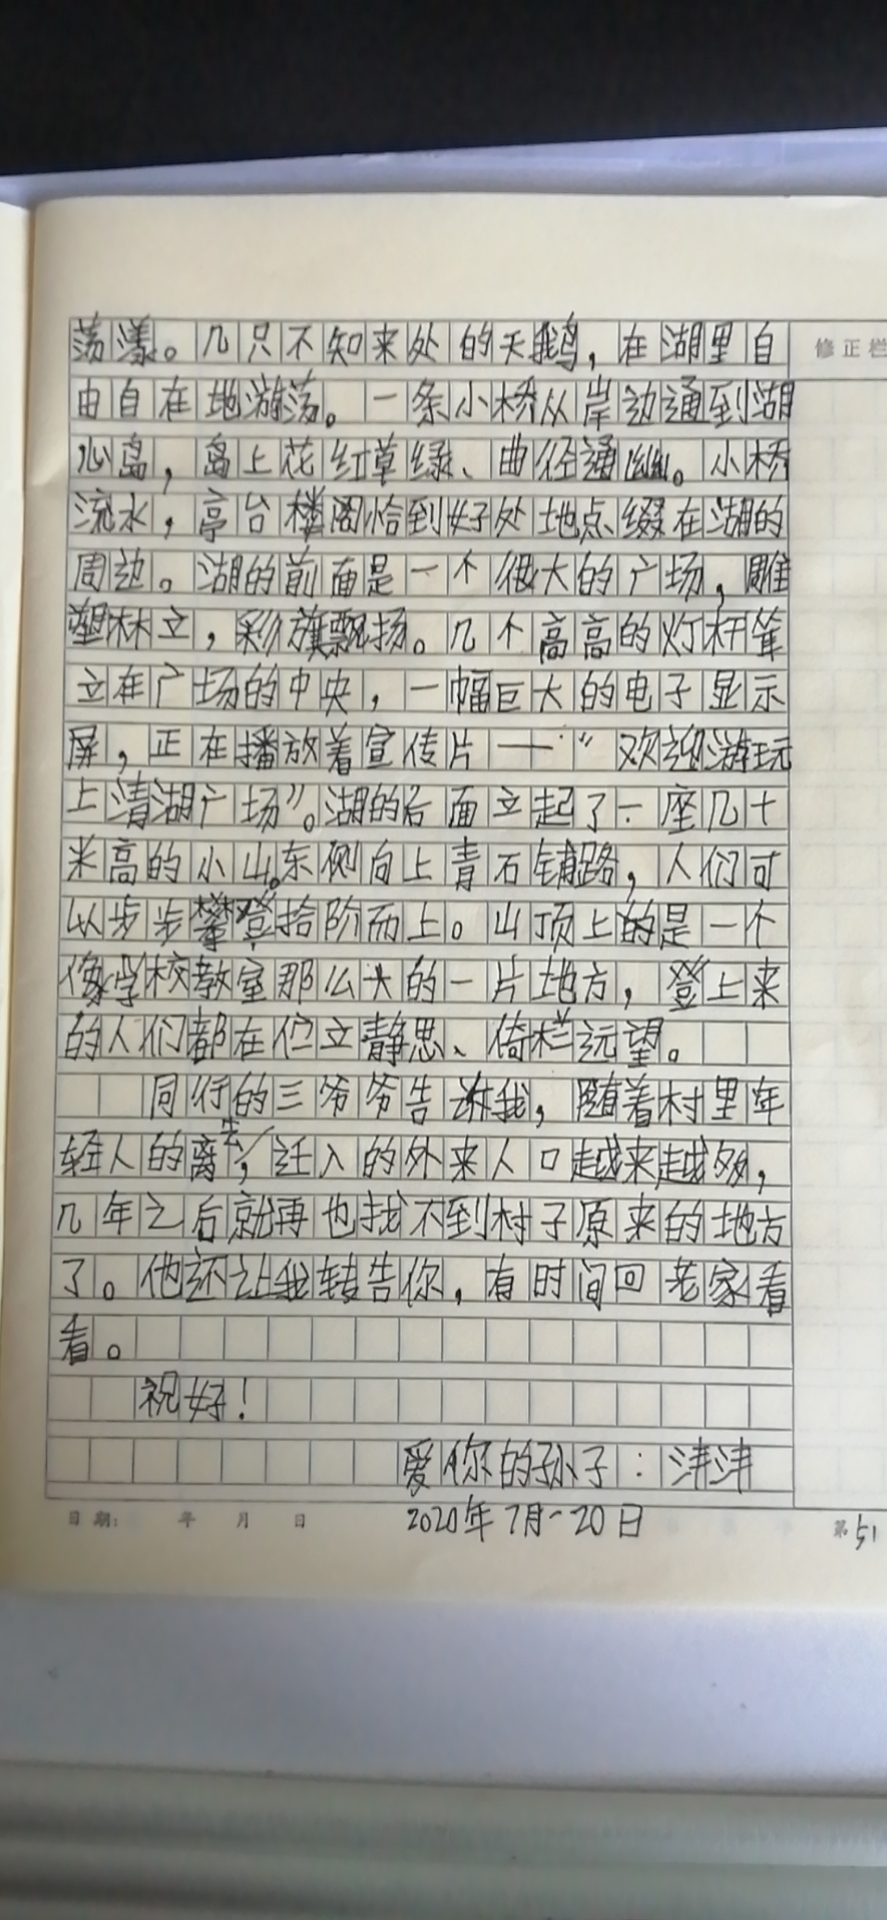 荡漾。几只不知来处的天鹅，在湖里自
修正栏
由自在地游荡。一条小桥从岸边通到湖
心岛，岛上花红草绿、曲径通幽。小桥
流水，亭台楼阁恰到好处地点缀在湖的
周边。湖的前面是一个很大的广场，雕
塑林立，彩旗飘扬。几个高高的灯杆耸
立在广场的中央，一幅巨大的电子显示
屏，正在播放着宣传片——“欢迎游玩
上清湖广场”。湖的后面立起了一座几十
米高的小山。东侧向上青石铺路，人们可
以步步攀登拾阶而上。山顶上的是一个
像学校教室那么大的一片地方，登上来
的人们都在伫立静思、倚栏远望。
同行的三爷爷告诉我，随着村里年
轻人的离去，迁入的外来人口越来越多，
几年之后就再也找不到村子原来的地方
了。他还让我转告你，有时间回老家看
看。
祝好！
爱你的孙子：沣沣
日期： 年 月 日
2020年7月-20日
第51